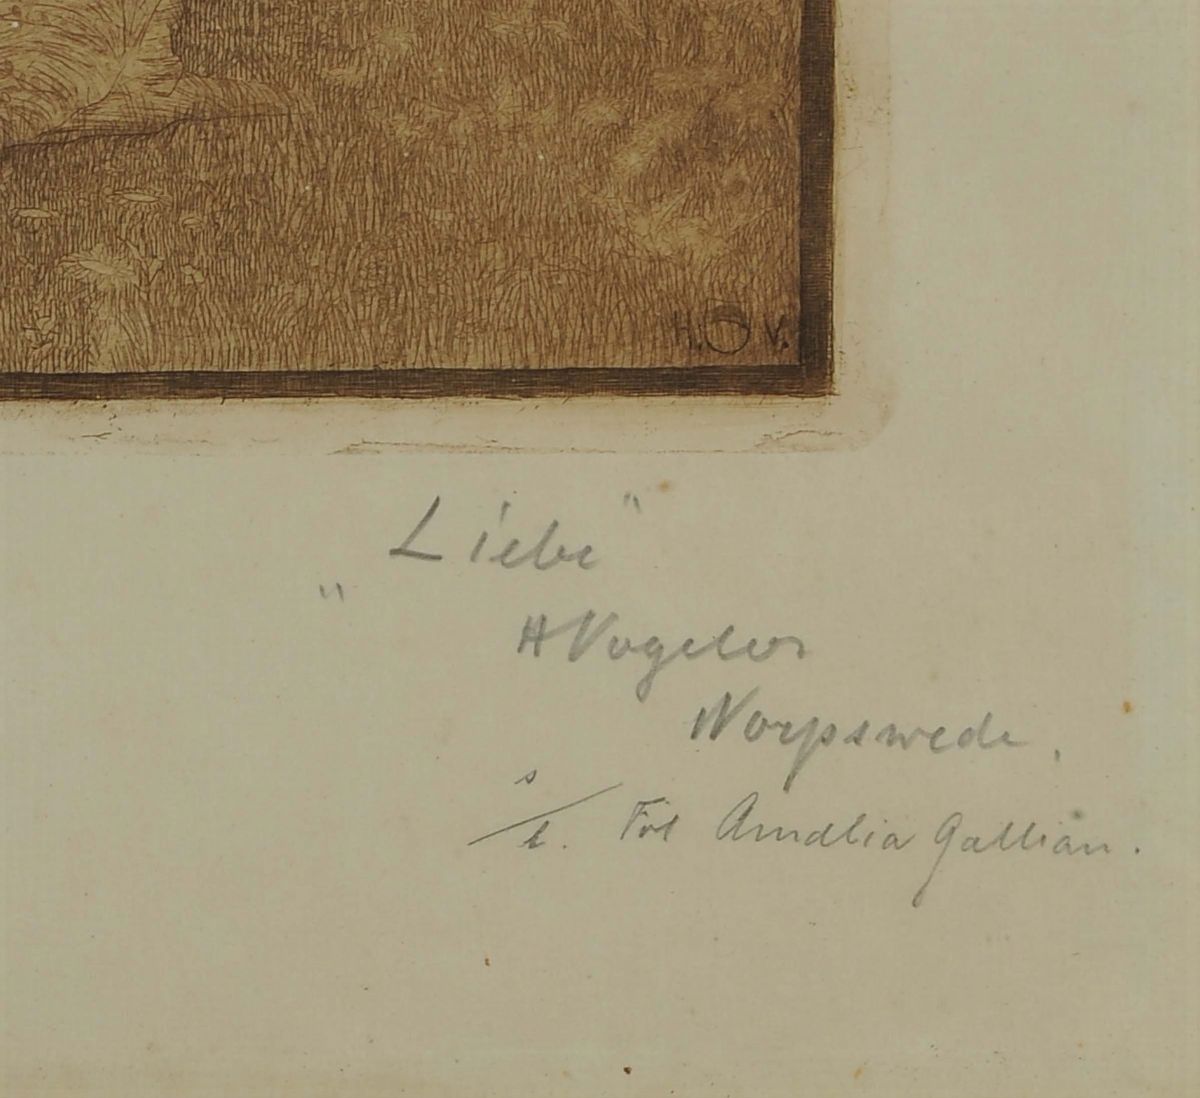 H. V.
"Liebe"
HVogeler
Worpswede.
s/t. Föl Amalia Gallian.